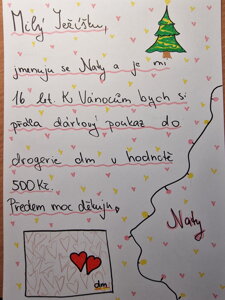 Milý Ježíšku,
jmenuju se Naty a je mi
16 let. K Vánocům bych si
přála dárkový poukaz do
drogerie dm v hodnotě
500 Kč.
Předem moc děkuju,
Naty
dm